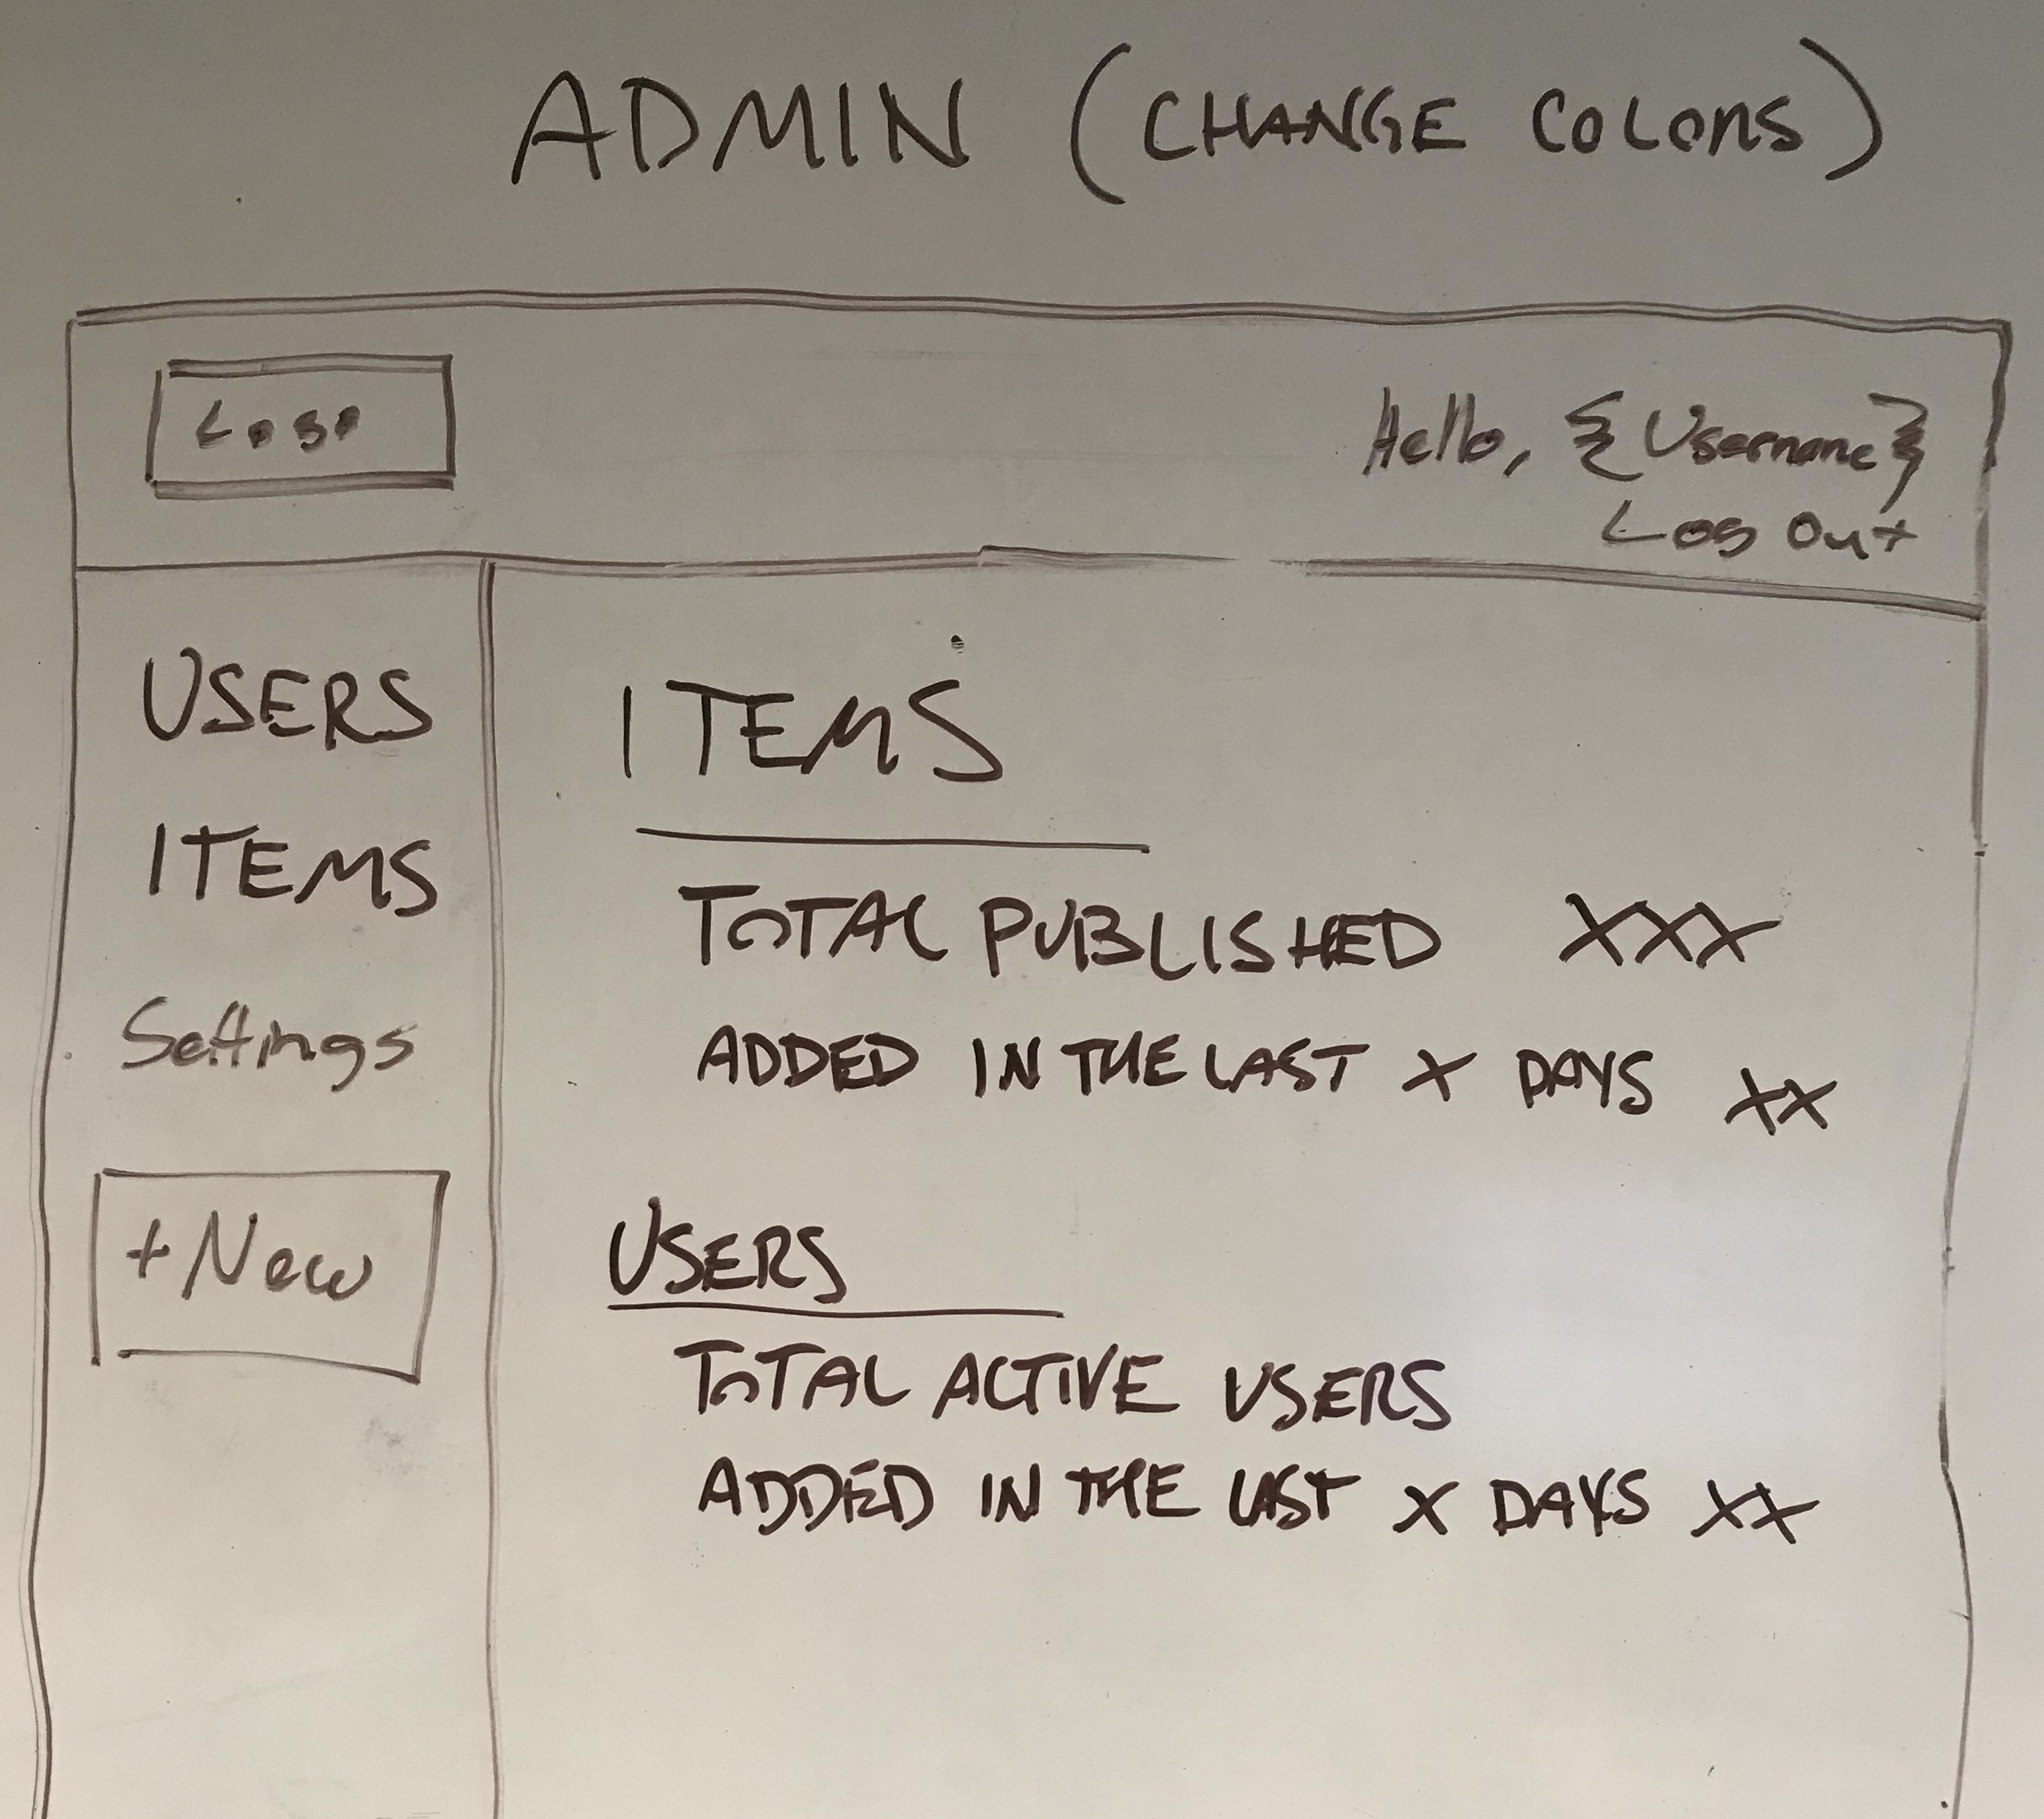 ADMIN (CHANGE COLORS)
Logo
Hello, {Username}
Log Out
USERS
ITEMS
Settings
+New
ITEMS
TOTAL PUBLISHED XXX
ADDED IN THE LAST X DAYS XX
USERS
TOTAL ACTIVE USERS
ADDED IN THE LAST X DAYS XX